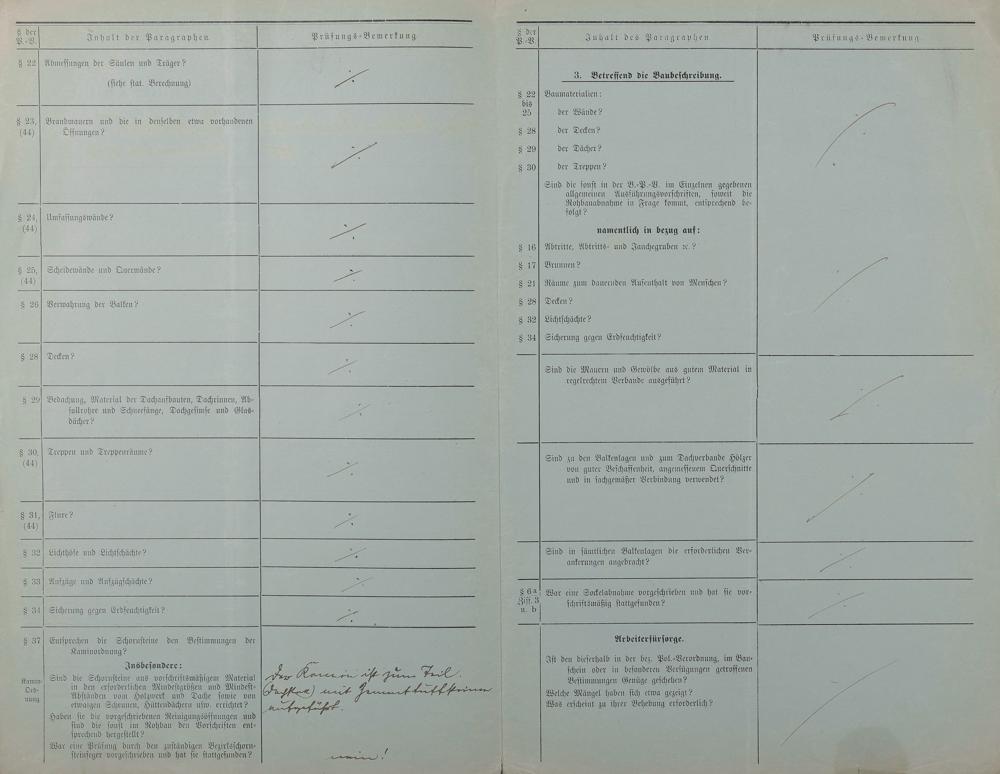 § der
P.-V.
Inhalt der Paragraphen
Prüfungs-Bemerkung
§ 22 Abmessungen der Säulen und Träger?
(siehe stat. Berechnung)
§ 23, Brandmauern und die in denselben etwa vorhandenen
(44) Öffnungen?
§ 24, Umfassungswände?
(44)
§ 25, Scheidewände und Querwände?
(44)
§ 26 Verwahrung der Balken?
§ 28 Decken?
§ 29 Bedachung, Material der Dachaufbauten, Dachrinnen, Ab-
fallrohre und Schneefänge, Dachgesimse und Glas-
dächer?
§ 30, Treppen und Treppenräume?
(44)
§ 31, Flure?
(44)
§ 32 Lichthöfe und Lichtschächte?
§ 33 Aufzüge und Aufzugschächte?
§ 34 Sicherung gegen Erdfeuchtigkeit?
§ 37 Entsprechen die Schornsteine den Bestimmungen der
Kaminordnung?
Insbesondere:
Kamin-
Ord-
nung
Sind die Schornsteine aus vorschriftsmäßigem Material
in den erforderlichen Mindestgrößen und Mindest-
Abständen vom Holzwerk und Dache sowie von
etwaigen Scheunen, Hüttendächern usw. errichtet?
Haben sie die vorgeschriebenen Reinigungsöffnungen und
sind sie sonst im Rohbau den Vorschriften ent-
sprechend hergestellt?
War eine Prüfung durch den zuständigen Bezirksschorn-
steinfeger vorgeschrieben und hat sie stattgefunden?
Der Kamin ist zum Teil
mit
ausgeführt.
nein!
§ der
P.-V.
Inhalt des Paragraphen
Prüfungs-Bemerkung
3. Betreffend die Baubeschreibung.
§ 22 Baumaterialien:
bis
25 der Wände?
§ 28 der Decken?
§ 29 der Dächer?
§ 30 der Treppen?
Sind die sonst in der B.-P.-V. im Einzelnen gegebenen
allgemeinen Ausführungsvorschriften, soweit die
Rohbauabnahme in Frage kommt, entsprechend be-
folgt?
namentlich in bezug auf:
§ 16 Abtritte, Abtritts- und Jauchegruben ꝛc.?
§ 17 Brunnen?
§ 21 Räume zum dauernden Aufenthalt von Menschen?
§ 28 Decken?
§ 32 Lichtschächte?
§ 34 Sicherung gegen Erdfeuchtigkeit?
Sind die Mauern und Gewölbe aus gutem Material in
regelrechtem Verbande ausgeführt?
Sind zu den Balkenlagen und zum Dachverbande Hölzer
von guter Beschaffenheit, angemessenem Querschnitte
und in sachgemäßer Verbindung verwendet?
Sind in sämtlichen Balkenlagen die erforderlichen Ver-
ankerungen angebracht?
§ 6a War eine Sockelabnahme vorgeschrieben und hat sie vor-
Ziff. 3 schriftsmäßig stattgefunden?
u. b
Arbeiterfürsorge.
Ist den dieserhalb in der bez. Pol.-Verordnung, im Bau-
schein oder in besonderen Verfügungen getroffenen
Bestimmungen Genüge geschehen?
Welche Mängel haben sich etwa gezeigt?
Was erscheint zu ihrer Behebung erforderlich?